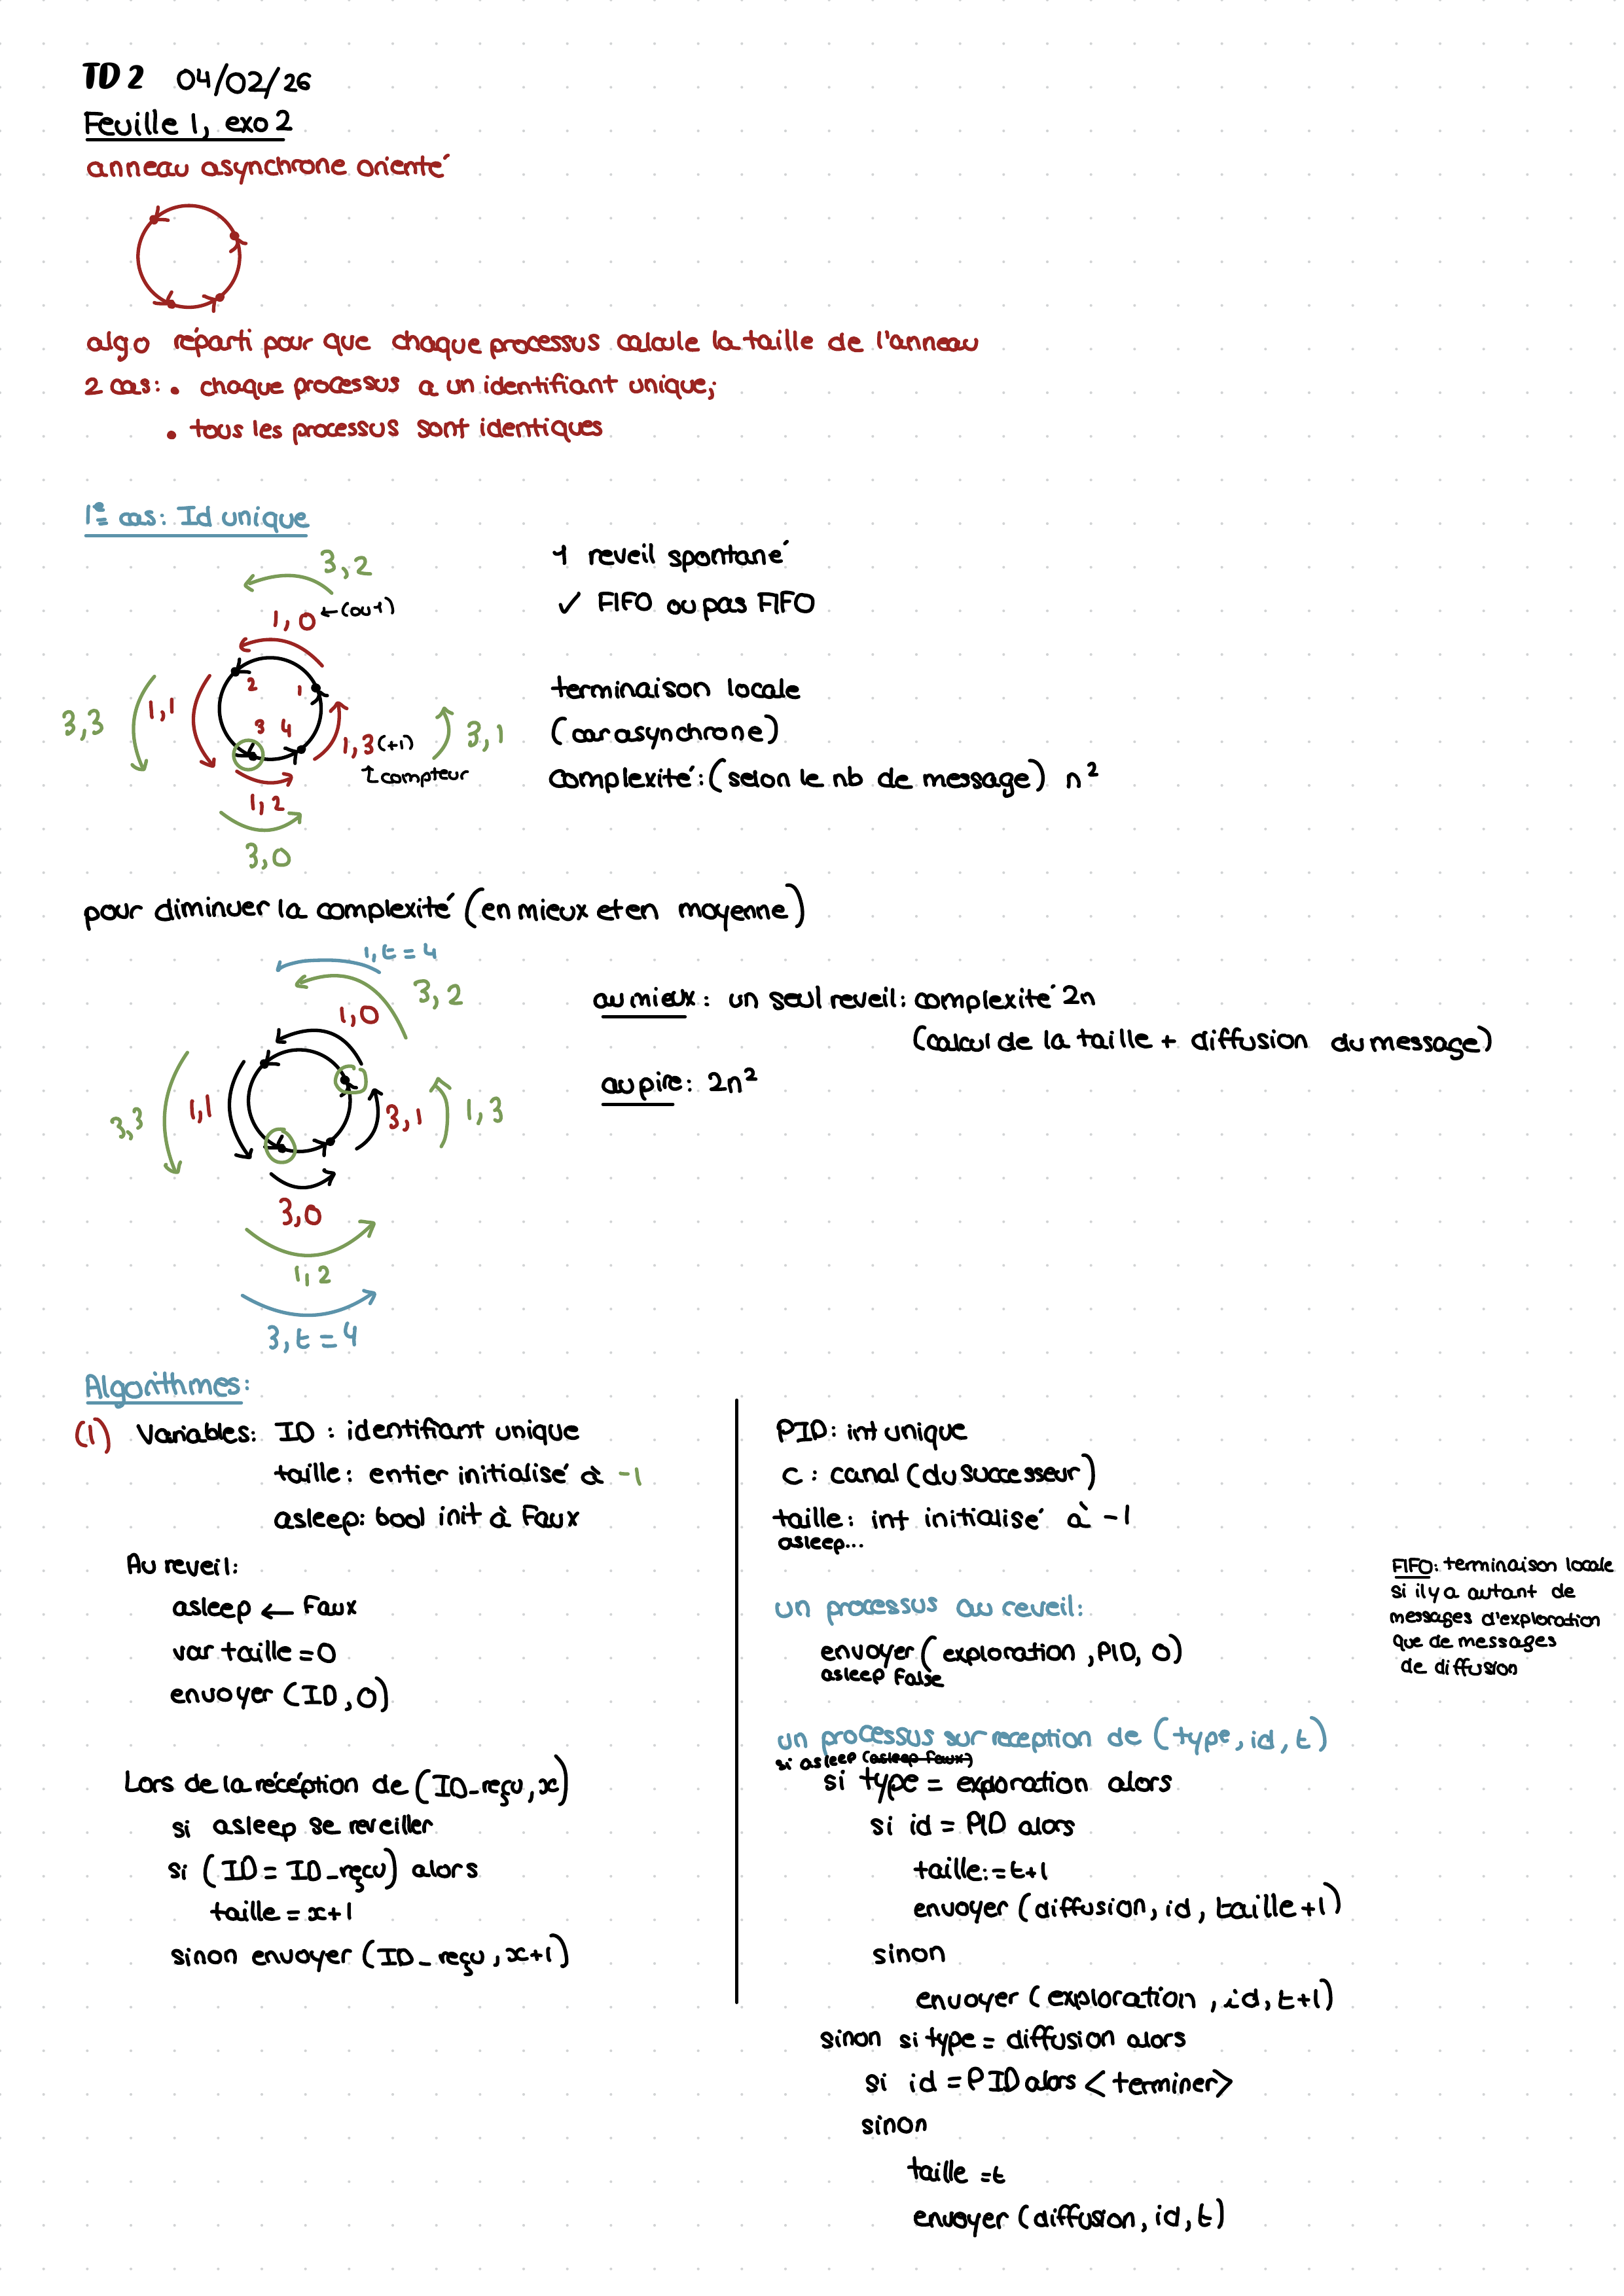 TD 2 04/02/26
Feuille 1, exo 2
anneau asynchrone orienté
algo réparti pour que chaque processus calcule la taille de l'anneau
2 cas: • chaque processus a un identifiant unique;
• tous les processus sont identiques
1e cas: Id unique
3,2
1,0 ←(ou 1)
2 1
3 4
1,1
3,3
1,3 (+1)
↑ compteur
3,1
1,2
3,0
1 reveil spontané
✓ FIFO ou pas FIFO
terminaison locale
(car asynchrone)
complexité: (selon le nb de message) n²
pour diminuer la complexité (en mieux et en moyenne)
1,t = 4
3,2
1,0
3,3
1,1
3,1
1,3
3,0
1,2
3,t = 4
au mieux: un seul reveil: complexité 2n
(calcul de la taille + diffusion du message)
au pire: 2n²
Algorithmes:
(1) Variables: ID : identifiant unique
taille: entier initialisé à -1
asleep: bool init à Faux
Au reveil:
asleep ← Faux
var taille = 0
envoyer (ID, 0)
Lors de la récéption de (ID_reçu, x)
si asleep se reveiller
si (ID = ID_reçu) alors
taille = x+1
sinon envoyer (ID_reçu, x+1)
PID: int unique
C : canal (du successeur)
taille: int initialisé à -1
asleep...
un processus au reveil:
envoyer (exploration, PID, 0)
asleep False
un processus sur reception de (type, id, t)
si asleep (asleep faux)
si type = exploration alors
si id = PID alors
taille: = t+1
envoyer (diffusion, id, taille+1)
sinon
envoyer (exploration, id, t+1)
sinon si type = diffusion alors
si id = PID alors <terminer>
sinon
taille = t
envoyer (diffusion, id, t)
FIFO: terminaison locale
si il y a autant de
messages d'exploration
que de messages
de diffusion